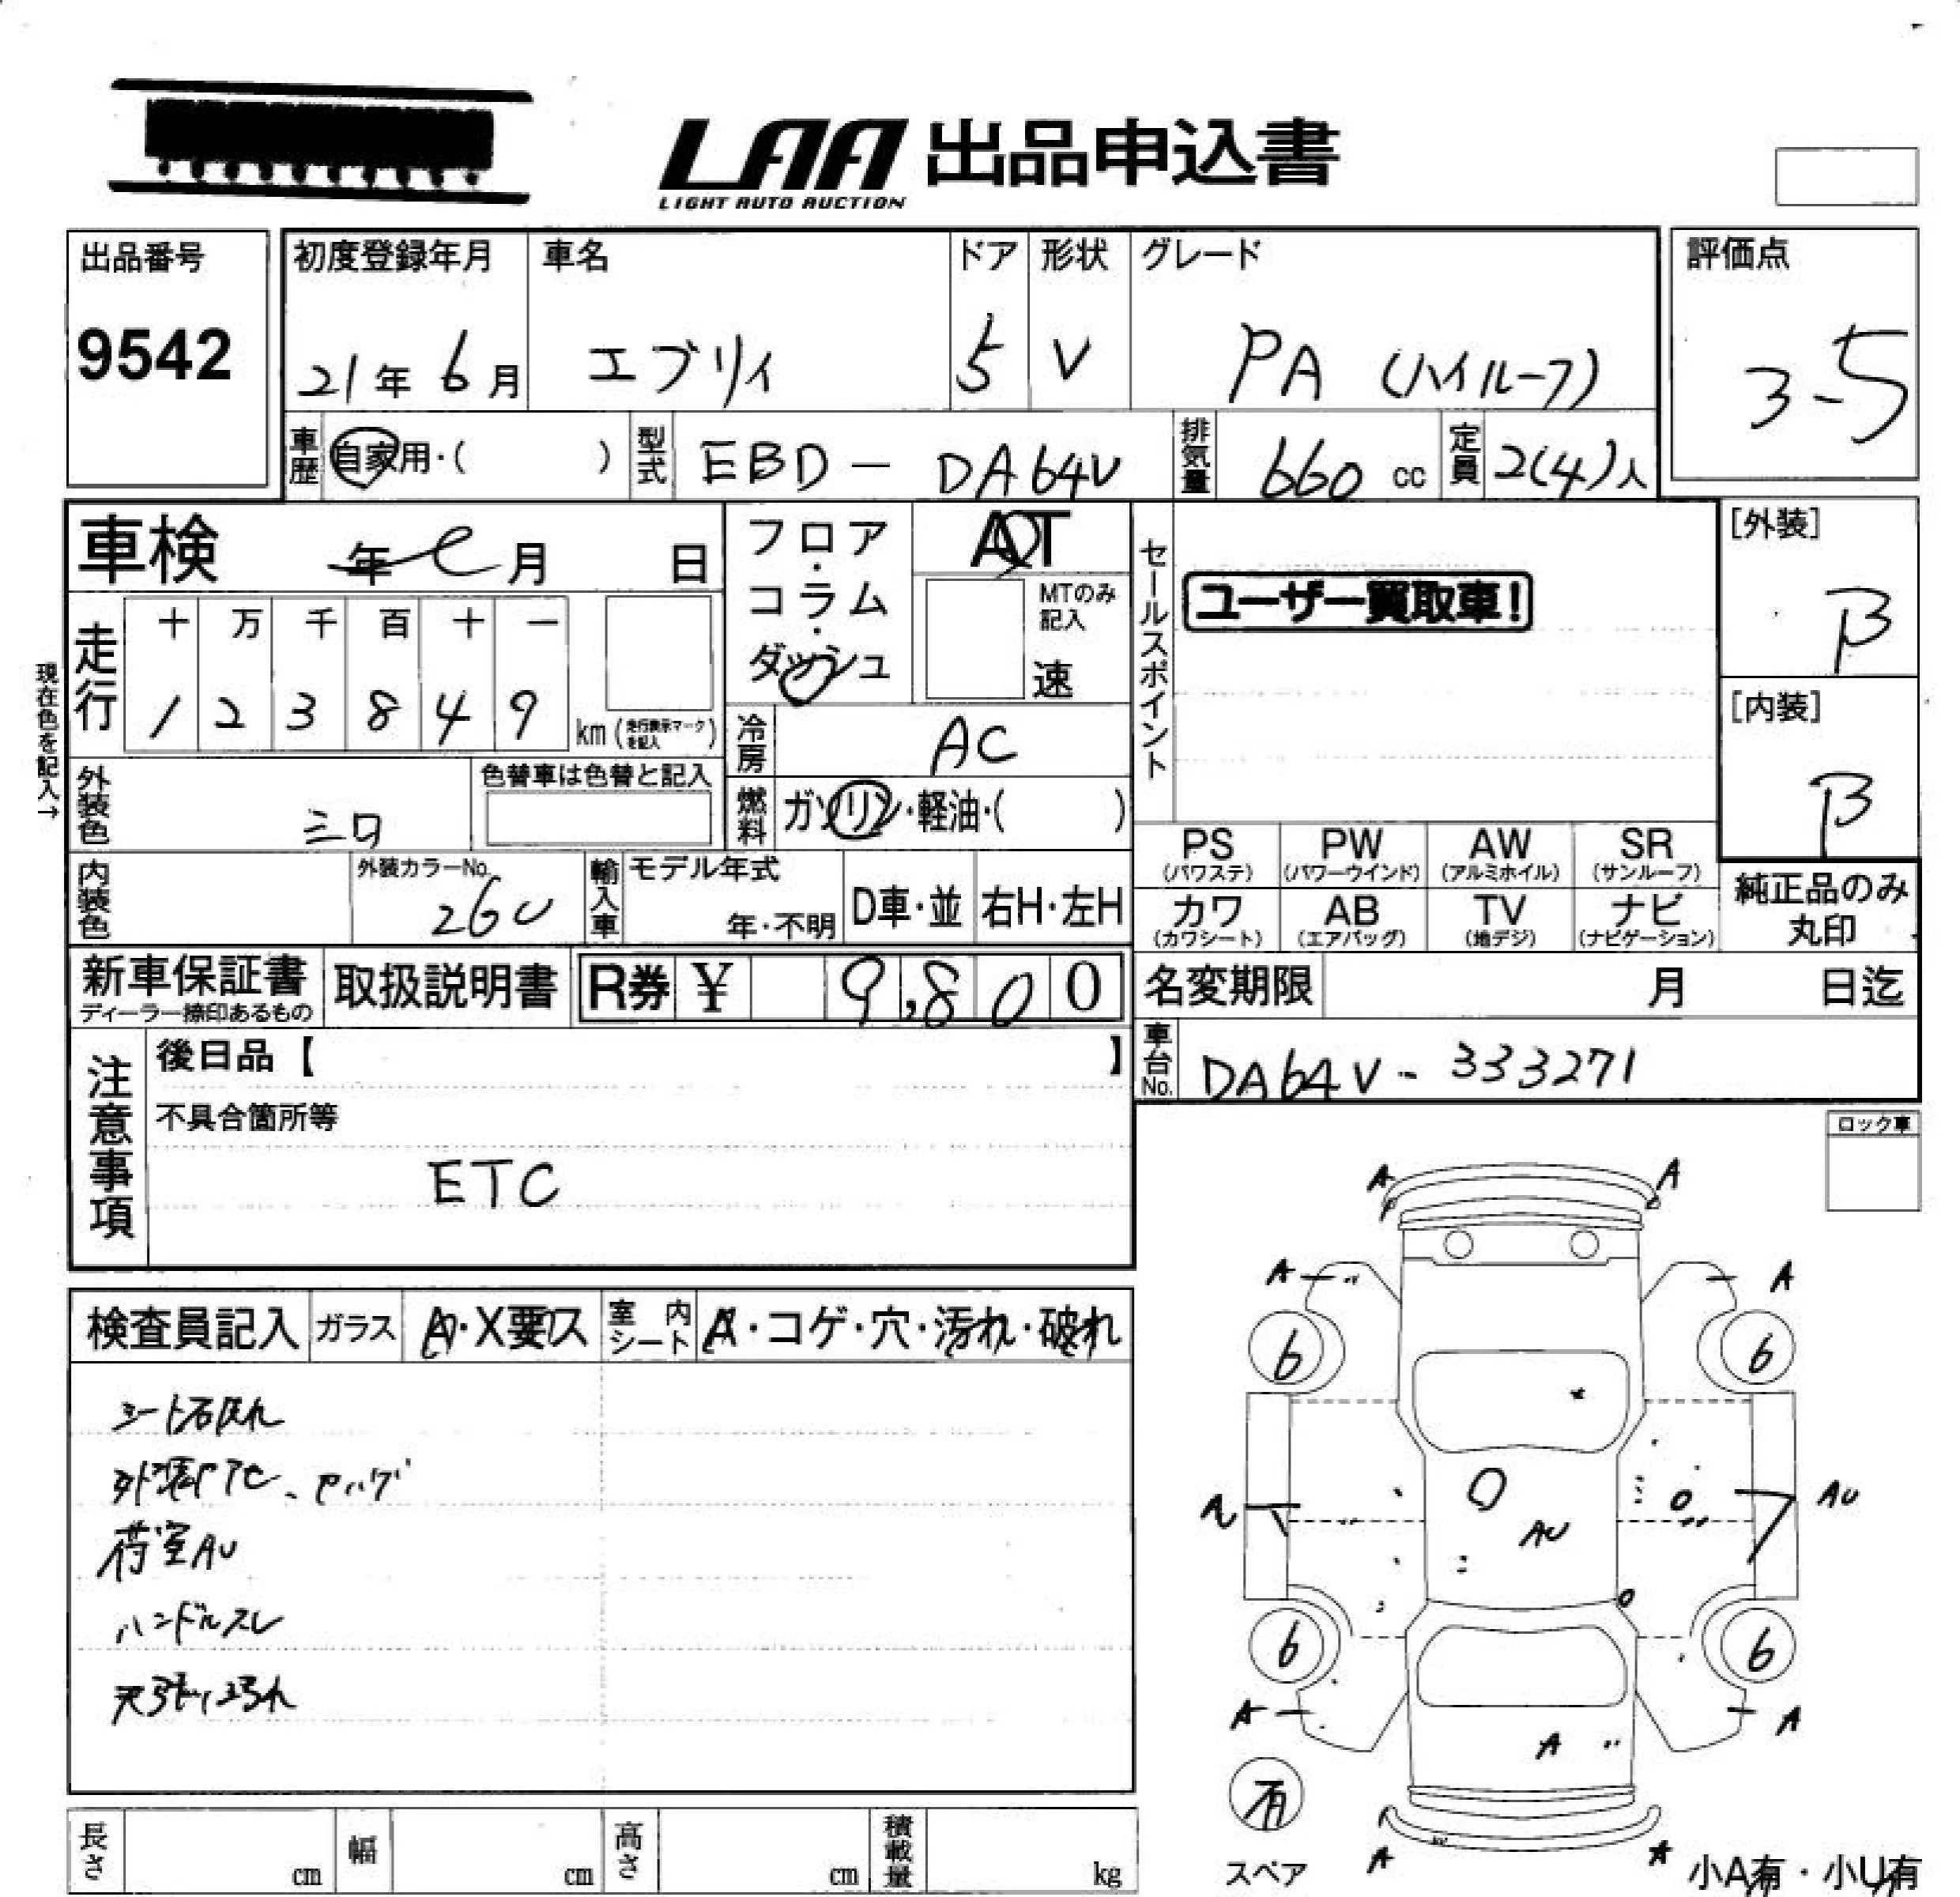 LAA 出品申込書
LIGHT AUTO AUCTION
出品番号
9542
初度登録年月
21年 6月
車名
エブリィ
ドア
5
形状
V
グレード
PA (ハイルーフ)
評価点
3-5
車歴 自家用・( )
型式 EBD - DA64V
排気量 660 cc
定員 2(4)人
車検 年 月 日
フロア・コラム・ダッシュ
AT
MTのみ記入
速
セールスポイント
ユーザー買取車!
[外装]
B
[内装]
B
現在色を記入→
走行
十 万 千 百 十 一
1 2 3 8 4 9
km (走行表示マークを記入)
冷房 AC
外装色 シロ
色替車は色替と記入
燃料 ガソリン・軽油・( )
内装色
外装カラーNo.
26U
輸入車
モデル年式
年・不明
D車・並
右H・左H
PS (パワステ)
PW (パワーウインド)
AW (アルミホイル)
SR (サンルーフ)
カワ (カワシート)
AB (エアバッグ)
TV (地デジ)
ナビ (ナビゲーション)
純正品のみ丸印
新車保証書
ディーラー捺印あるもの
取扱説明書
R券 ¥ 9,800
名変期限 月 日迄
車台No. DA64V - 333271
注意事項
後日品【 】
不具合箇所等
ETC
ロック車
検査員記入
ガラス A・X要ス
室内シート A・コゲ・穴・汚れ・破れ
荷室AU
ハンドルスレ
A A
A A
6 6
AU
AU
6 6
A A
A
有
スペア
A A
小A有・小U有
長さ cm
幅 cm
高さ cm
積載量 kg